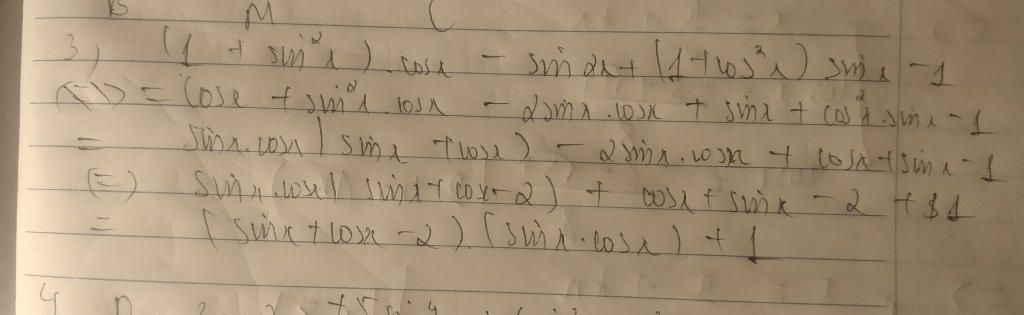 B M C
3) (1 + sin²x).cosx - sin2x + (1+cos²x) sinx - 1
(=) = Cosx + sin²x.cosx - 2sinx.cosx + sinx + cos²x.sinx - 1
= sinx.cosx(sinx + cosx) - 2sinx.cosx + cosx + sinx - 1
(=) sinx.cosx(sinx + cosx - 2) + cosx + sinx - 2 + 1
= (sinx + cosx - 2).(sinx.cosx) + 1
4